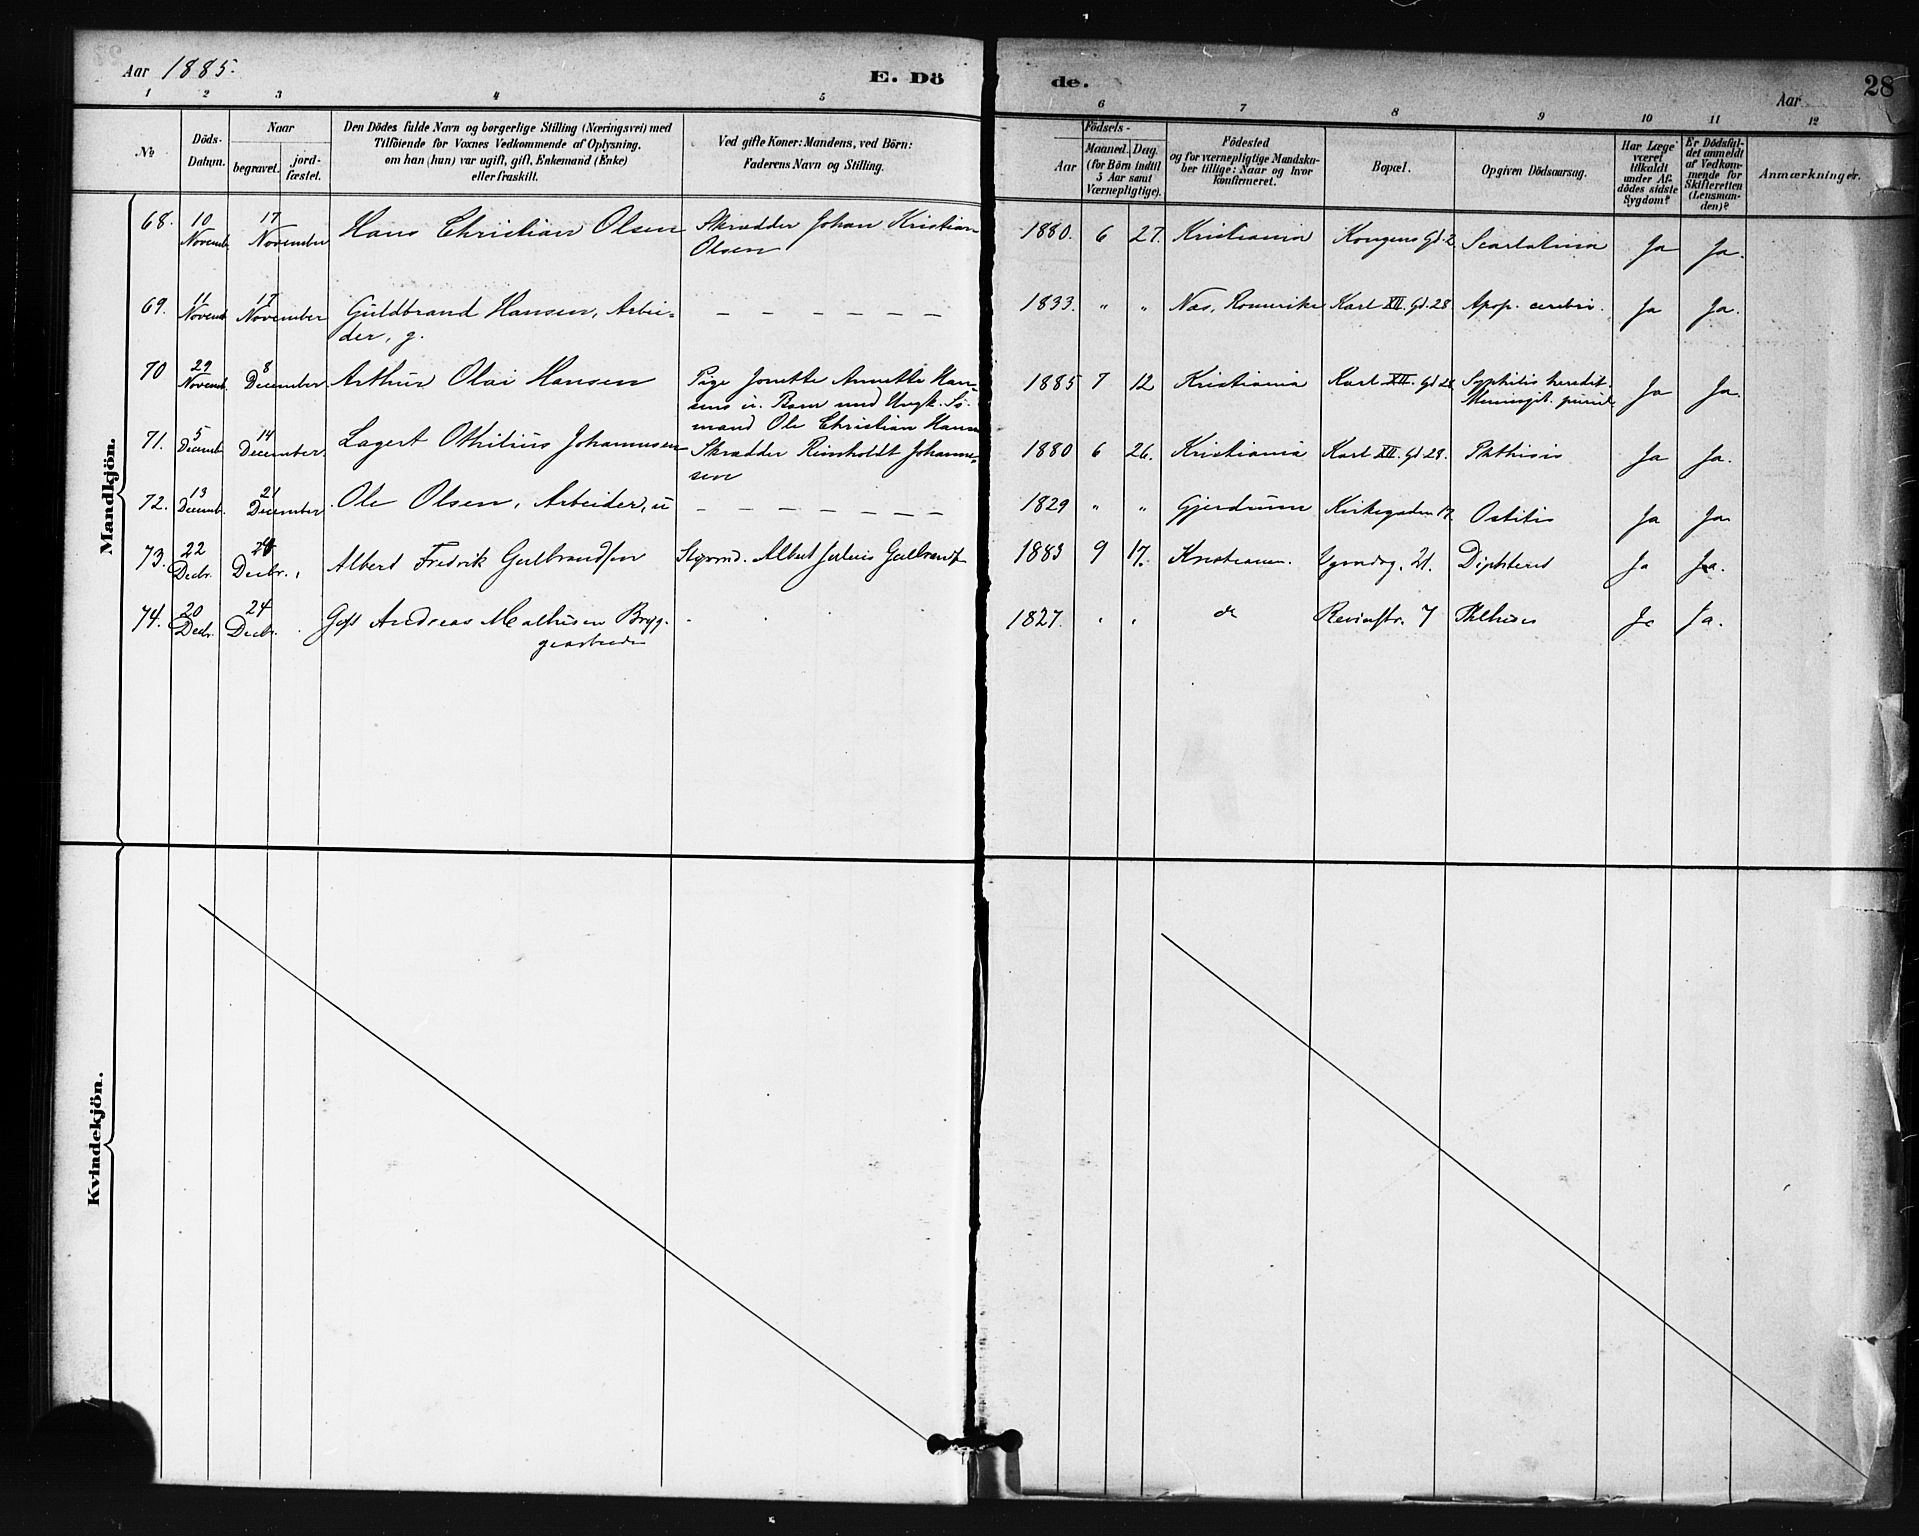 Aar 1885.
E. Dö
de.
28
Aar
1 2 3 4 5 6 7 8 9 10 11 12
No
Döds-
Datum.
Naar
begravet.
jord-
fæstet.
Den Dödes fulde Navn og borgerlige Stilling (Næringsvei) med
Tilföiende for Voxnes Vedkommende af Oplysning,
om han (hun) var ugift, gift, Enkemand (Enke)
eller fraskilt.
Ved gifte Koner: Mandens, ved Börn:
Faderens Navn og Stilling.
Födsels-
Aar
Maaned. Dag.
(for Börn indtil
5 Aar samt
Værnepligtige).
Födested
og for værnepligtige Mandska-
ber tillige: Naar og hvor
Konfirmeret.
Bopæl.
Opgiven Dödsaarsag.
Har Læge
været
tilkaldt
under Af-
dödes sidste
Sygdom?
Er Dödsfal-
det anmeldt
af Vedkom-
mende for
Skifteretten
(Lensman-
den)?
Anmærkninger.
Mandkjön.
68. 10 Novemb. 17 November Hans Christian Olsen Skrædder Johan Kristian 1880. 6 27. Kristiania Kongens Gd. 2 Scarlatina Ja Ja.
Olsen
69. 11 Novemb 17 November Guldbrand Hansen, Arbei- — — — — — — 1833. " " Nas, Romerike Karl XII. Gd. 28. Apop. cerebri. Ja Ja.
der, g.
70 29 Novemb. 8 December Arthur Olai Hansen Pige Jonette Annette Han- 1885 7 12 Kristiania Karl XII. Gd 28. Syphilis heredit. Ja Ja.
sens u. Barn med Ungk. Sö-
mand Ole Christian Hans
71. 5 Decemb 14 December. Lagert Othilius Johannesen Skrædder Reinholdt Johanne- 1880 6 26. Kristiania Karl XII. Gd 28. Phthisis Ja Ja.
sen
72. 13 Decemb. 21 December. Ole Olsen, Arbeider, u — — — — — — 1829 " " Gjerdrum Kirkegaden Ostitis Ja Ja
73. 22 Decbr. Decbr. Albert Fredrik Gulbrandsen Albert Julius Gulbrands 1883 9 17. Kristiania. 21. Diphterit Ja Ja.
74. 20 Decbr. 24 Decbr. Gift Andreas Mathisen Bryg- 1827. " " do 7 Phthisis Ja Ja.
gearbeider
Kvindekjön.